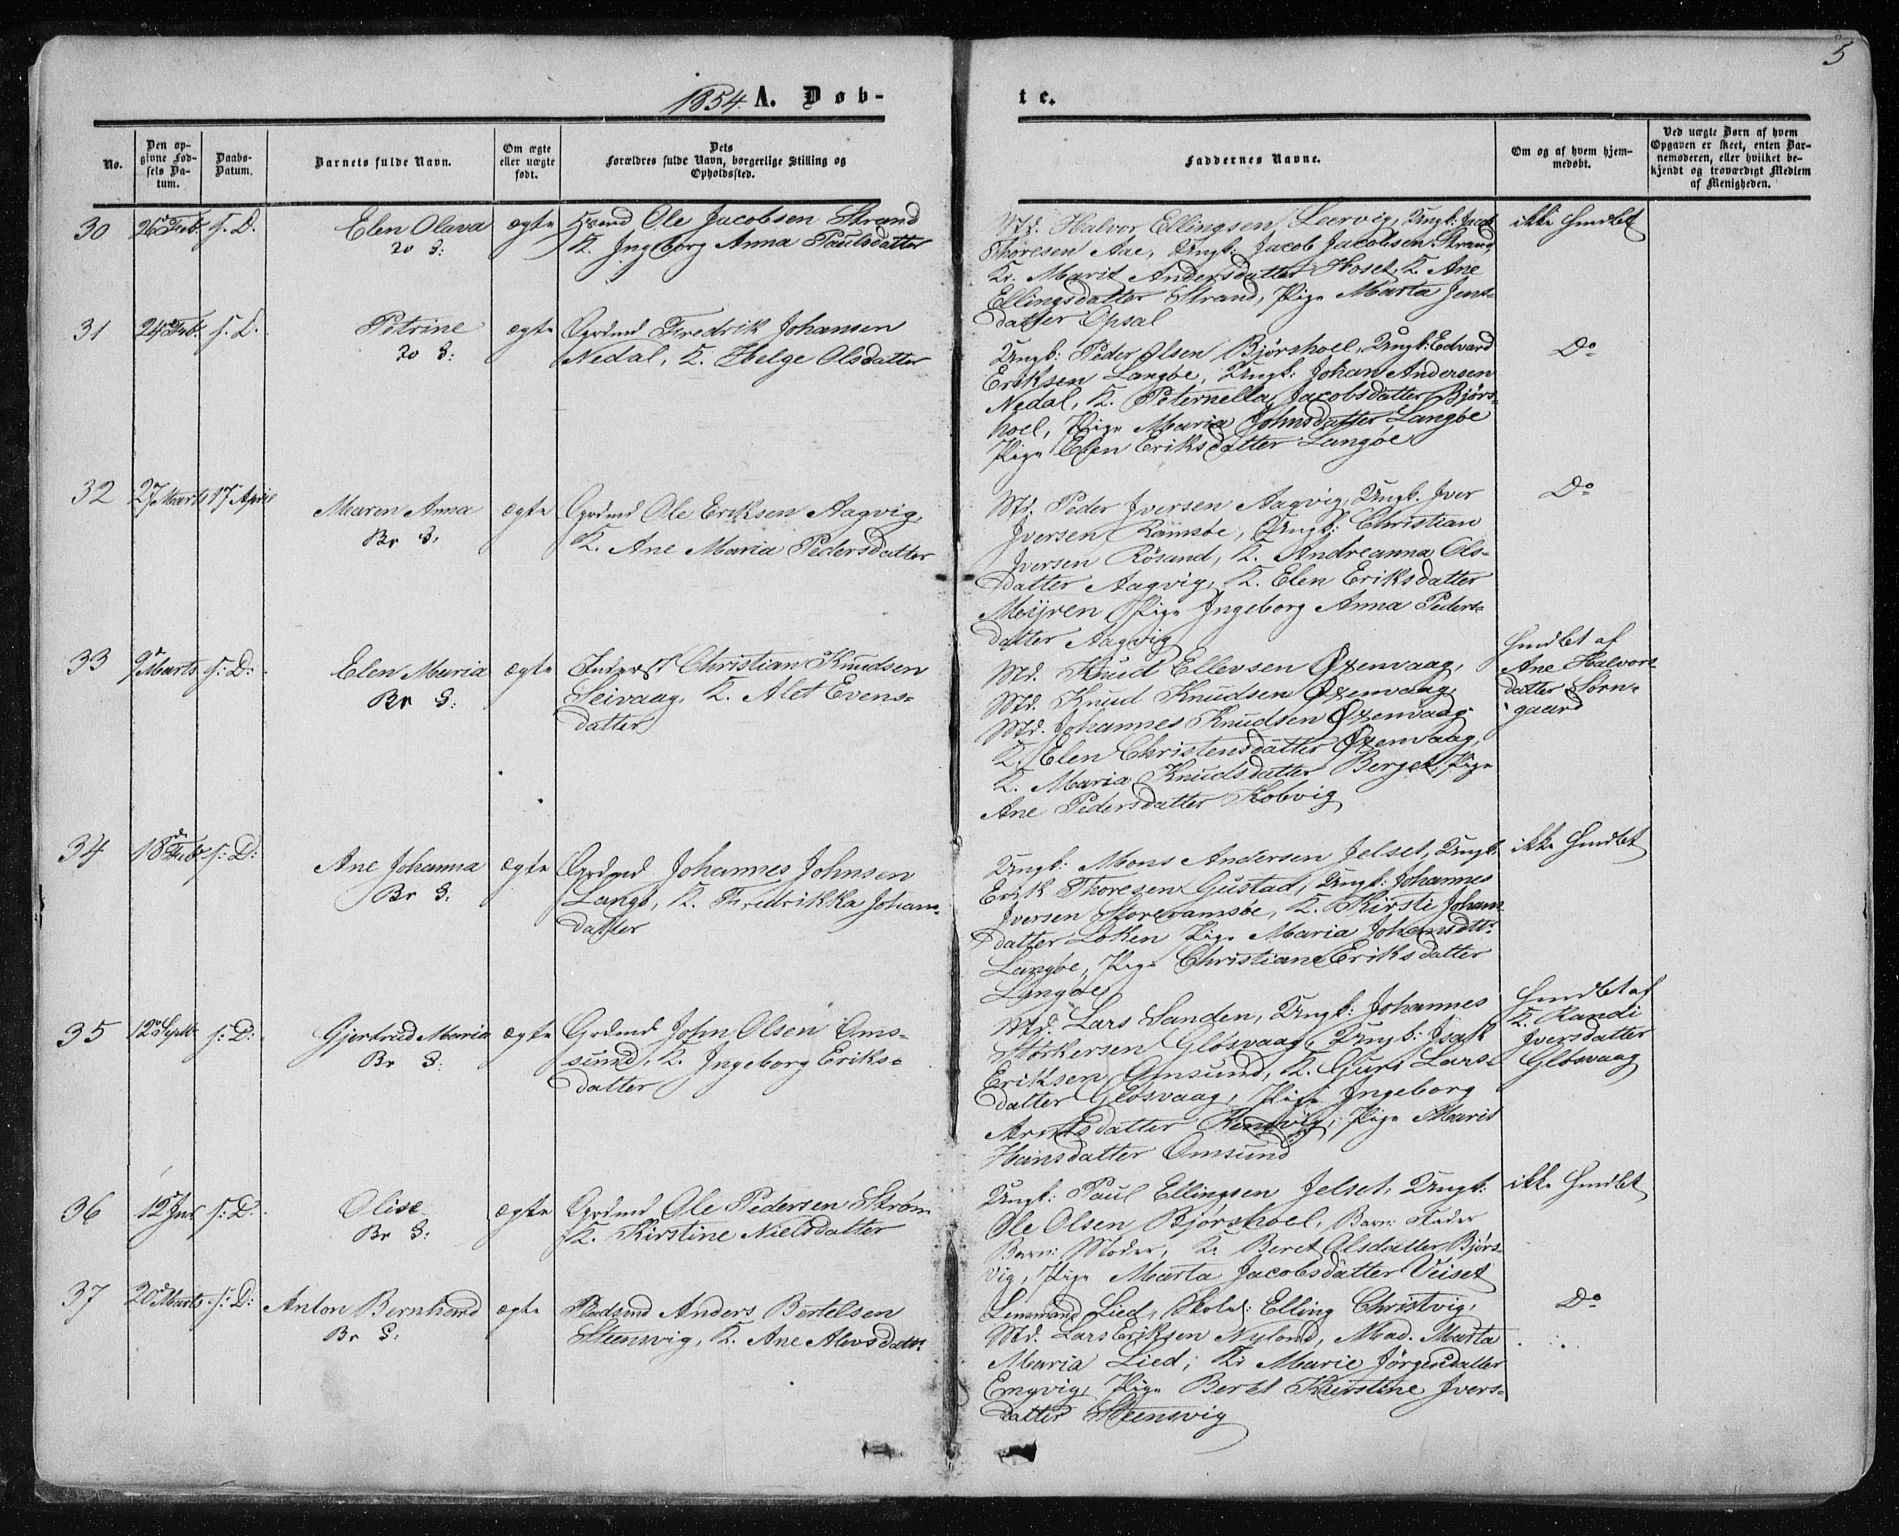 5
1854. A. Døb-
te.
No.
Den op-
givne Fød-
sels Da-
tum.
Daabs-
Datum.
Barnets fulde Navn.
Om ægte
eller uægte
født.
Dets
Forældres fulde Navn, borgerlige Stilling og
Opholdssted.
Faddernes Navne.
Om og af hvem hjem-
medøbt.
Ved uægte Børn af hvem
Opgaven er skeet, enten Bar-
nemoderen, eller hvilket be-
kjendt og troværdigt Medlem
af Menigheden.
30 26 Feb. s. D. Elen Olava ægte Ole Jacobsen Strand
K. Ingeborg Anna Paulsdatter
Md. Halvor Ellingsen Lervig, Ungk:
Thoresen Aae, Ungk: Jacob Jacobsen Strand,
K. Marit Andersdatter Hoset, K. Ane
Ellingsdatter Strand, Pige Marta Jens-
datter Opsal
ikke hmdbt
31 24 Feb. s. D. Petrine ægte Grdmd Fredrik Johansen
Nedal, K. Helge Olsdatter
Ungk: Peder Olsen Bjørshoel, Ungk: Edvard
Eriksen Langøe, Ungk: Johan Andersen
Nedal, K. Peternella Jacobsdatter Bjørs-
hoel, Pige Maria Johnsdatter Langøe
Pige Elen Eriksdatter Langøe
Do
32 27 Marts 17 April Maren Anna
Br S: ægte Grdmd Ole Eriksen Aagvig,
K. Ane Maria Pedersdatter
Md. Peder Iversen Aagvig, Ungk. Iver
Iversen Ramsøe, Ungk: Christian
Iversen Røsand, K. Andreanna Ols-
datter Aagvig, K. Elen Eriksdatter
Møyren, Pige Ingeborg Anna Peders-
datter Aagvig
Do
33 9 Marts s: D: Elen Maria
Br S: ægte Inderst Christian Knudsen
Seivaag, K. Alet Evens-
datter
Md. Knud Ellevsen Øxenvaag,
Md. Knud Knudsen Øxenvaag,
Md. Johannes Knudsen Øxenvaag,
K. Elen Christensdatter Øxenvaag,
K. Maria Knudsdatter Berget, Pige
Ane Pedersdatter Kobvig
hmdbt af
Ane Halvors-
datter Sørn-
gaard
34 18 Feb. s: D: Ane Johanna
Br S: ægte Grdmd Johannes Johnsen
Langø, K. Fredrikka Johans-
datter
Ungk: Mons Andersen Jelset, Ungk:
Erik Thoresen Gustad, Ungk: Johannes
Iversen Storeramsøe, K. Kirsti Johans
datter Løken Pige Maria Johansdtr
Langøe, Pige Christiane Eriksdatter
Langøe
ikke hmdbt
35 12 Septbr s: D: Gjertrud Maria
Br S: ægte Grdmd John Olsen Om-
sund, K. Ingeborg Eriks-
datter
Md. Lars Sanden, Ungk: Johannes
Størkersen Gløsvaag, Ungk: Isak
Eriksen Omsund, K. Guri Lars-
datter Gløsvaag, Pige Ingeborg
Arntsdatter Pige Marit
Hansdatter Omsund
hmdbt af
K. Randi
Iversdatter
Gløsvaag
36 12 s: D: Olise
Br S: ægte Grdmd Ole Pedersen Strøm
K. Kirstine Nielsdatter
Ungk: Paul Ellingsen Jelset, Ungk:
Ole Olsen Bjørshoel, Barn: Fader
Barn: Moder, K. Beret Olsdatter Bjørs-
vig, Pige Marta Jacobsdatter Veiset
ikke hmdbt
37 20 Marts s: D: Anton Bernhard
Br S: ægte Anders Bertelsen
Steensvig, K. Ane Alevsdatr
Lensmand Lied, Skolel: Elling Christvig,
Md. Lars Eriksen Nyland, Mad. Marta
Maria Lied, K. Marie Jørgensdatter
Pige Beret Kirstine Ivers-
datter Steensvig
Do